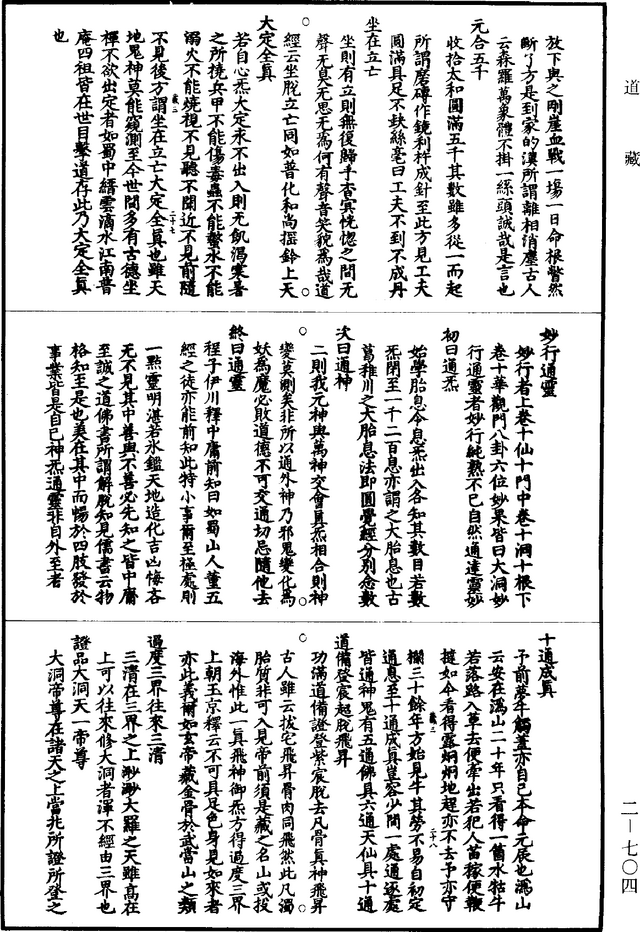 放下與之剛崖血戰一場一日命根瞥然
斷了方是到家的漢所謂離相消塵古人
云森羅萬象體不掛一絲頭誠哉是言也
元合五千
收拾太和圓滿五千其數雖多從一而起
所謂磨磚作鏡利杵成針至此方見工夫
圓滿具足不缺絲毫曰工夫不到不成丹
坐在立亡
坐則有立則無復歸乎杳冥恍惚之間无
聲无臭无思无為何有聲音笑貌為哉道
經云坐脫立亡同如普化和尚搖鈴上天
大定全真
若自心炁大定永不出入則无飢渴寒暑
之所撓兵甲不能傷毒蟲不能螫水不能
溺火不能燒視不見聽不聞近不見前隨
不見後方謂坐在立亡大定全真也雖天
地鬼神莫能窺測至今世間多有古德坐
禪不欲出定者如蜀中縉雲滴水江南普
庵四祖皆在世目擊道存此乃大定全真
也
妙行通靈
妙行者上卷十仙十門中卷十洞十根下
卷十華觀門八卦六位妙果皆曰大洞妙
行通靈者妙行純熟不已自然通達靈妙
初曰通炁
始學胎息令息炁出入各知其數目若數
炁閉至一千二百息亦謂之大胎息也古
葛稚川之大胎息法即圓覺經分別愈數
次曰通神
二則我元神與萬神交會真炁相合則神
變莫測矣非所以通外神乃邪鬼變化為
妖為魔必敗道德不可交通切忌隨他去
終曰通靈
程子伊川釋中庸前知曰如蜀山人董五
經之徒亦能前知此特小事爾至極處則
一點靈明湛若氷鑑天地造化吉凶悔吝
无不見其中善與不善必先知之皆中庸
至誠之道佛書所謂解脫知見儒書云物
格知至是也美在其中而暢於四肢發於
事業皆是自己神炁通靈非自外至者
十通成真
予前夢牛觸童亦自己本命元辰也溈山
云安在溈山二十年只看得一箇水牯牛
若落路入草去便牽出若犯人苗稼便鞭
撻如今看得露炯炯地趕亦不去予亦守
欄三十餘年方始見牛其勞不易自初定
通息至十通成真豈容少間一處通逐處
皆通神鬼有五通佛具六通天仙具十通
道備登宸超脫飛昇
功滿道備證登紫宸脫去凡骨真神飛昇
古人雖云拔宅飛昇骨肉同飛然此凡濁
胎質非可入見帝前須是藏之名山或投
海外惟此一真飛神御炁方得過度三界
上朝玉京釋云不可具足色身見如來者
亦此義爾如玄帝藏金骨於武當山之類
過度三界往來三清
三清在三界之上渺渺大羅之天雖高在
上可以往來修大洞者渾不經由三界也
證品大洞天一帝尊
大洞帝尊在諸天之上當兆所證所登之
道藏
二—七〇四